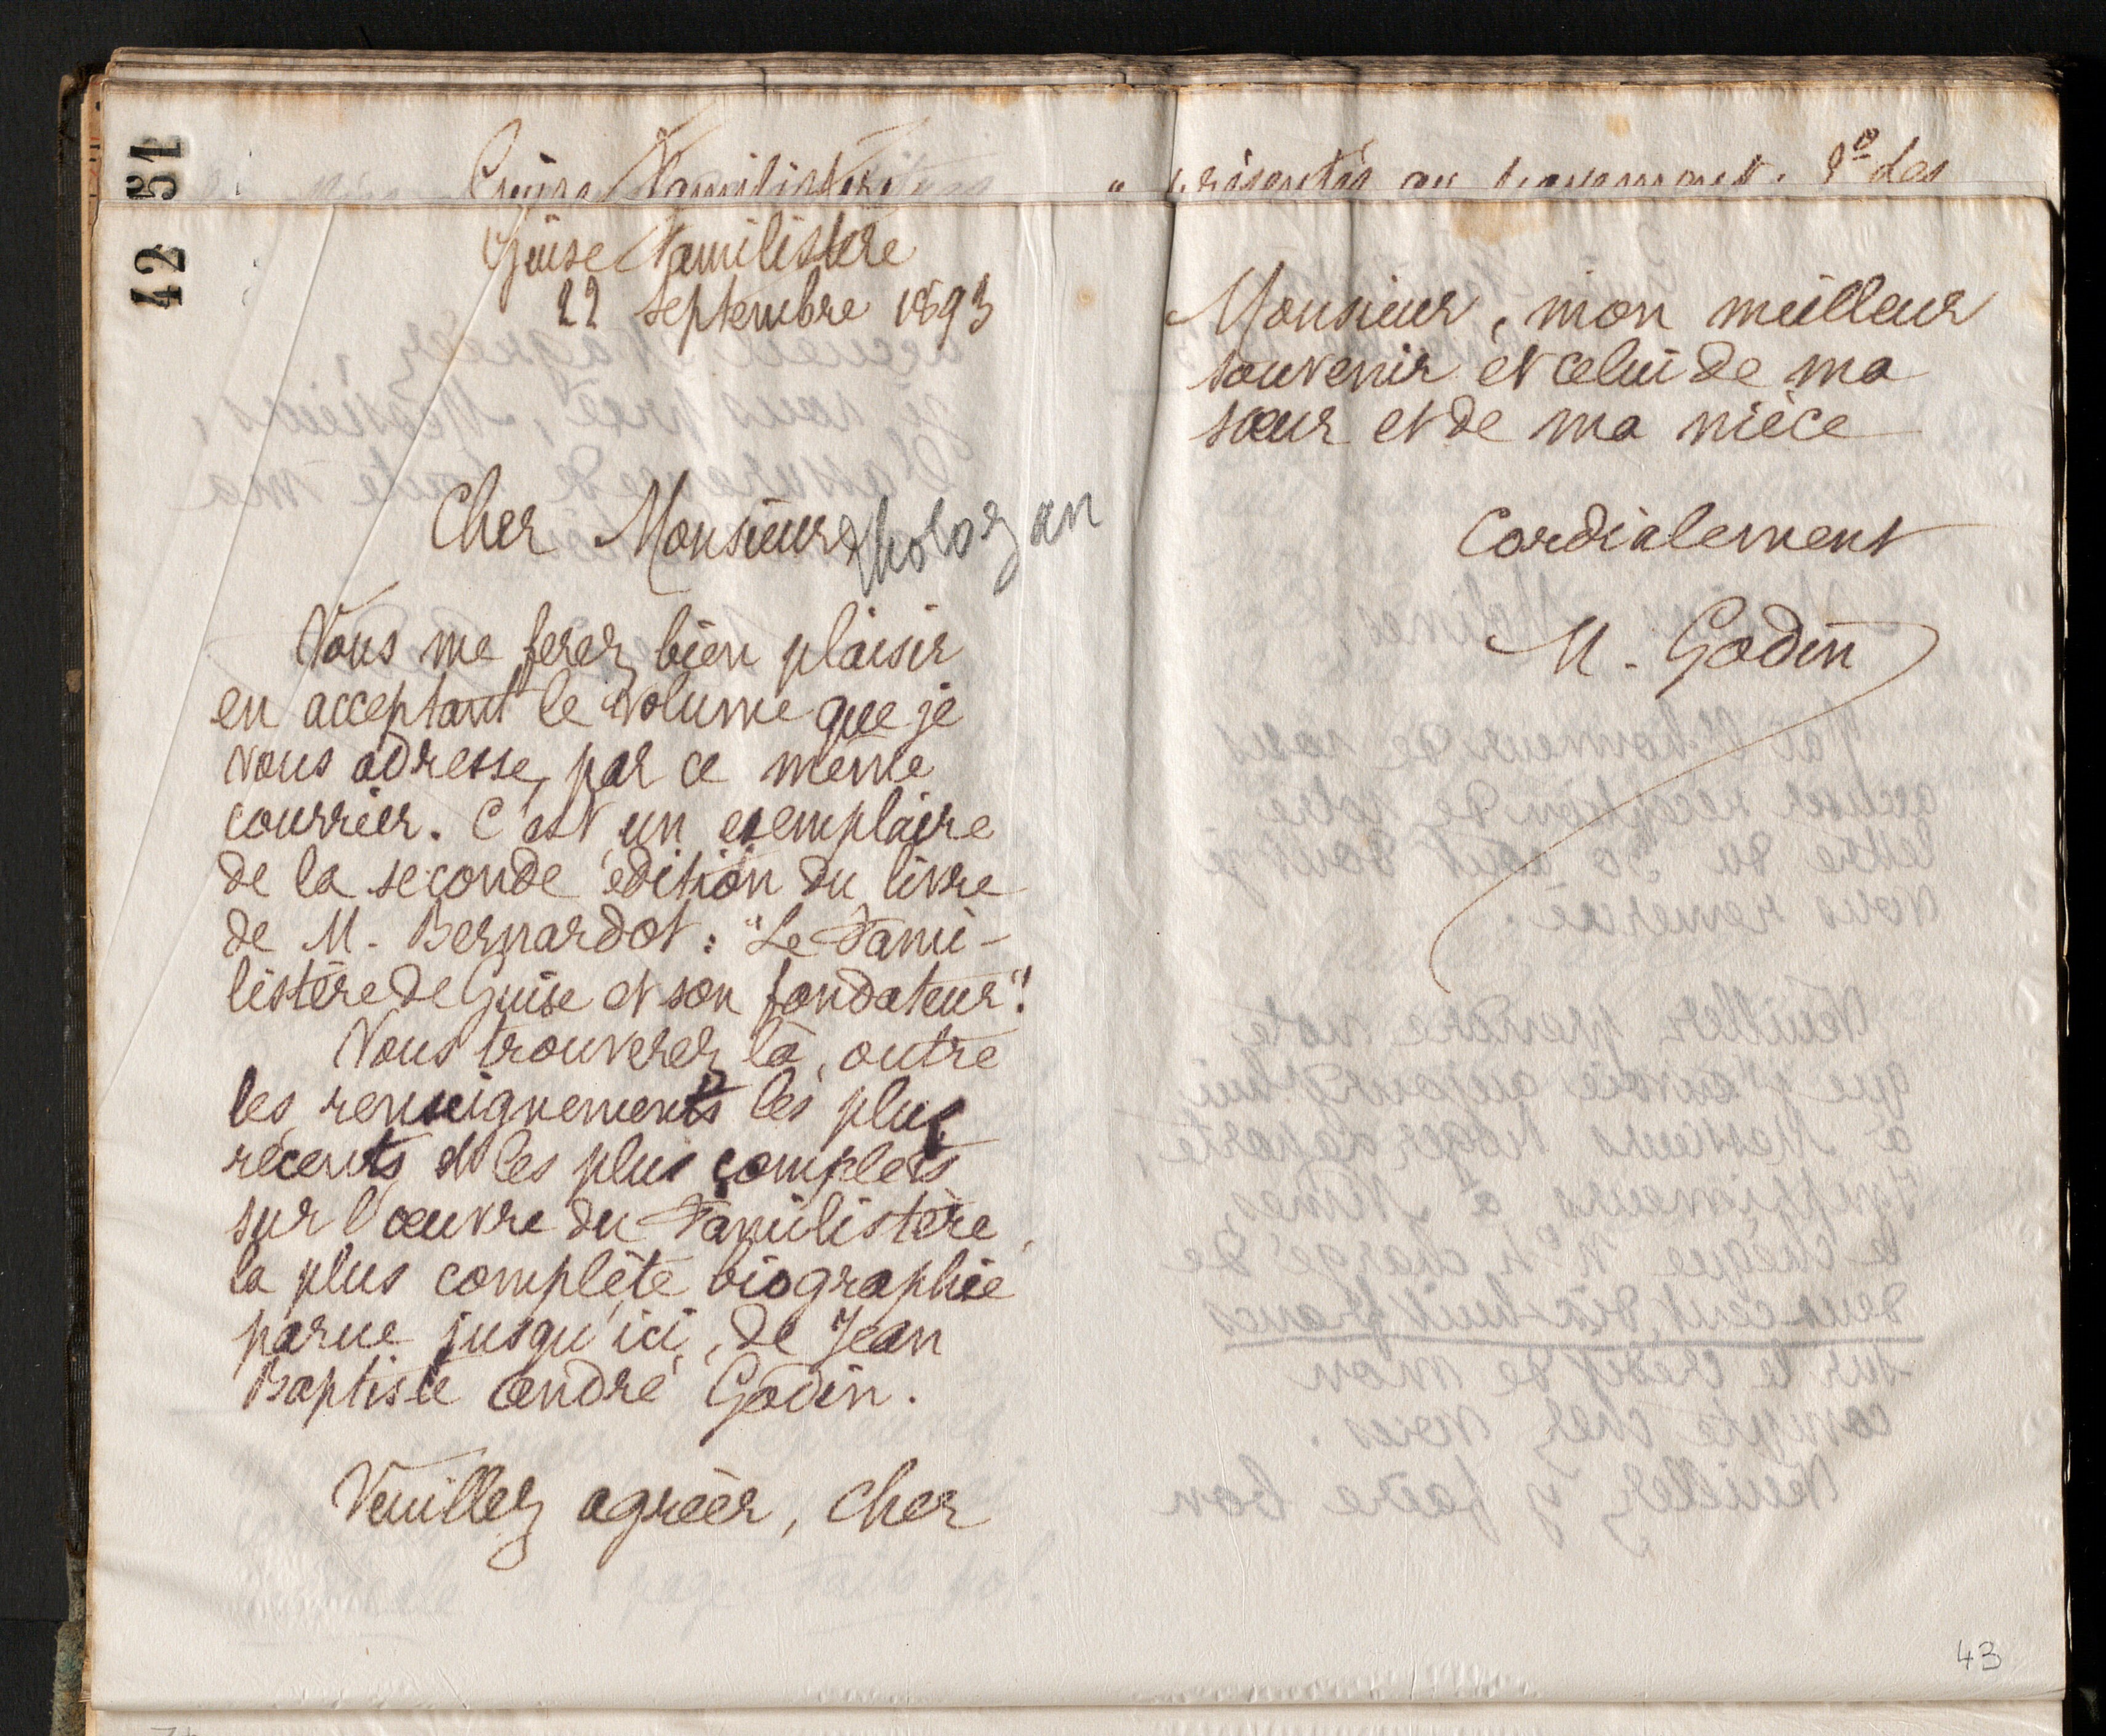 51
Guise Familistère
présentés au 2º Les
42
Guise Familistère
22 Septembre 1893
Cher Monsieur
Vous me ferez bien plaisir
en acceptant le volume que je
vous adresse, par ce même
courrier. C'est un exemplaire
de la seconde édition du livre
de M. Bernardot : "Le Fami-
listère de Guise et son fondateur".
Vous trouverez là, outre
les renseignements les plus
récents et les plus complets
sur l'œuvre du Familistère,
la plus complète biographie
parue jusqu'ici, de Jean
Baptiste André Godin.
Veuillez agréer, cher
Monsieur, mon meilleur
souvenir et celui de ma
sœur et de ma nièce
Cordialement
M. Godin
43